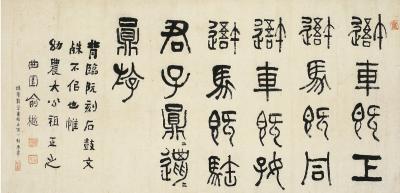 䢒車既工
䢒馬既同
䢒車既好
䢒馬既駐
君子員邋
員斿
背臨阮刻石鼓文
殊不佀也惟
幼農大公祖正之
曲園俞樾